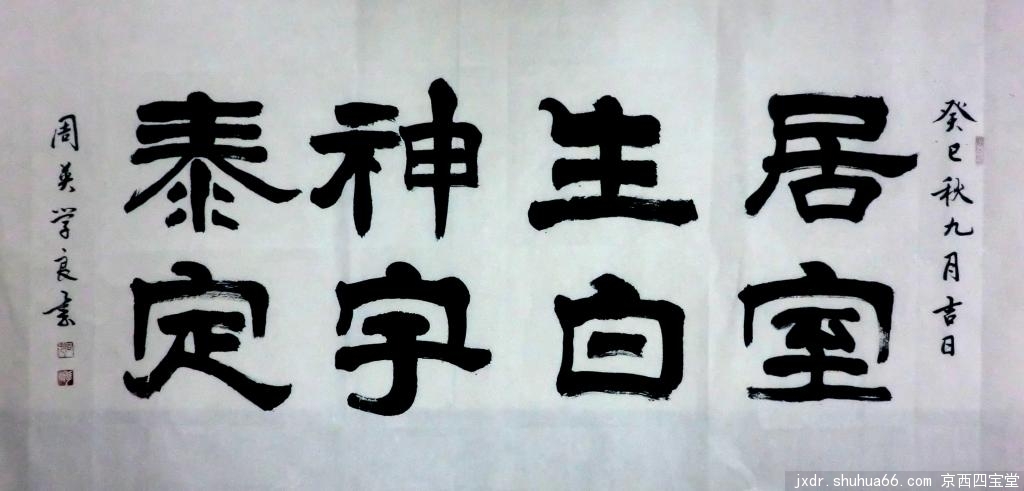 癸巳秋九月吉日
居室
生白
神宇
泰定
周英学良書
jxdr.shuhua66.com 京西四宝堂